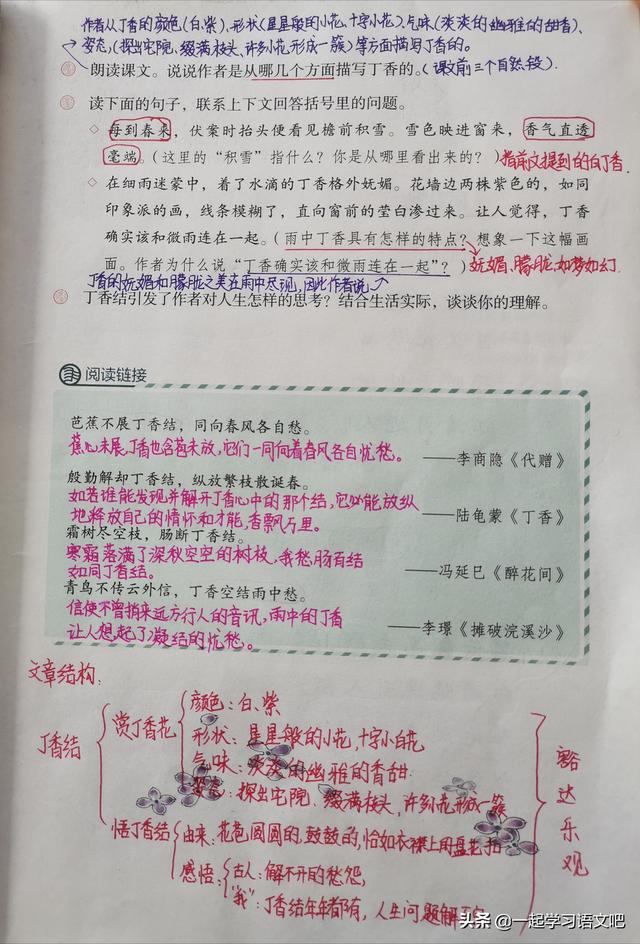 作者从丁香的颜色(白、紫)、形状(星星般的小花、十字小花)、气味(淡淡的幽雅的甜香)、
姿态,(探出宅院、缀满枝头、许多小花形成一簇)等方面描写丁香的。
朗读课文。说说作者是从哪几个方面描写丁香的。(课文前三个自然段)
读下面的句子,联系上下文回答括号里的问题。
◇ 每到春来,伏案时抬头便看见檐前积雪。雪色映进窗来,香气直透
毫端。(这里的“积雪”指什么?你是从哪里看出来的?)指前文提到的白丁香.
◇ 在细雨迷蒙中,着了水滴的丁香格外妩媚。花墙边两株紫色的,如同
印象派的画,线条模糊了,直向窗前的莹白渗过来。让人觉得,丁香
确实该和微雨连在一起。(雨中丁香具有怎样的特点?想象一下这幅画
面。作者为什么说“丁香确实该和微雨连在一起”?)妩媚、朦胧、如梦如幻.
丁香的妩媚和朦胧之美在雨中尽现,因此作者说
丁香结引发了作者对人生怎样的思考?结合生活实际,谈谈你的理解。
阅读链接
芭蕉不展丁香结,同向春风各自愁。
蕉心未展丁香也含苞未放,它们一同向着春风各自忧愁。
——李商隐《代赠》
殷勤解却丁香结,纵放繁枝散诞春。
如若谁能发现并解开丁香心中的那个结,它必能放纵
地释放自己的情怀和才能,香飘万里。
——陆龟蒙《丁香》
霜树尽空枝,肠断丁香结。
寒霜落满了深秋空空的树枝,我愁肠百结
如同丁香结。
——冯延巳《醉花间》
青鸟不传云外信,丁香空结雨中愁。
信使不曾捎来远方行人的音讯,雨中的丁香
让人想起了凝结的忧愁。
——李璟《摊破浣溪沙》
文章结构:
丁香结
赏丁香花
颜色:白、紫
形状:星星般的小花,十字小白花
气味:淡淡的幽雅的香甜
姿态:探出宅院、缀满枝头,许多小花形成一簇
悟丁香结
由来:花苞圆圆的,鼓鼓的,恰如衣襟上的盘花扣
感悟:
古人:解不开的愁怨,
“我”:丁香结年年都有,人生问题解
豁达乐观
头条 @一起学习语文吧